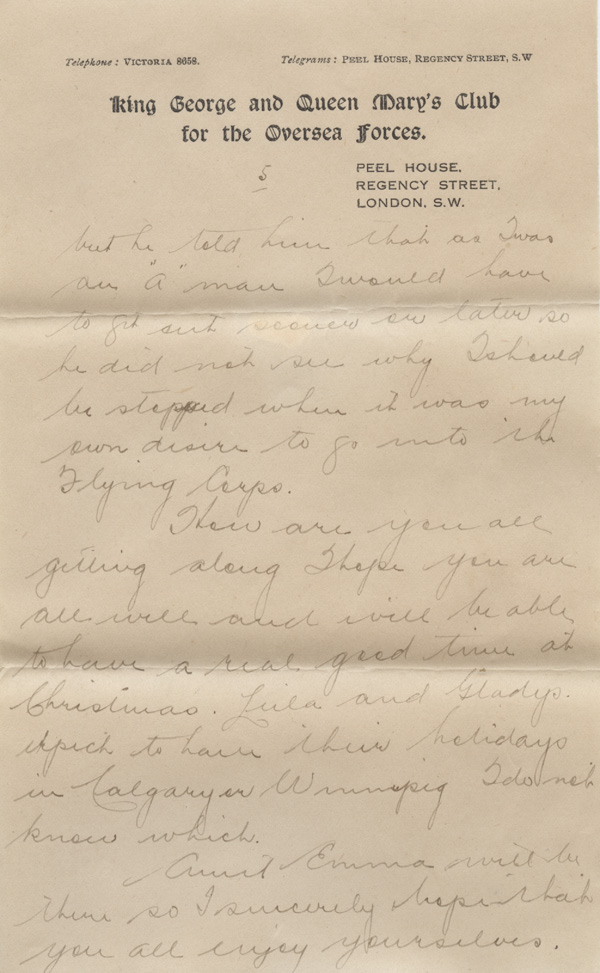 Telephone: VICTORIA 8658. Telegrams: PEEL HOUSE, REGENCY STREET, S.W
King George and Queen Mary's Club
for the Oversea Forces.
5
PEEL HOUSE,
REGENCY STREET,
LONDON, S.W.
but he told him that as I was
an "A" man I would have
to get out sooner or later so
he did not see why I should
be stopped when it was my
own desire to go into the
Flying Corps.
How are you all
getting along I hope you are
all well and will be able
to have a real good time at
Christmas. Lula and Gladys.
expect to have their holidays
in Calgary or Winnipeg I do not
know which.
Aunt Emma will be
there so I sincerely hope that
you all enjoy yourselves.